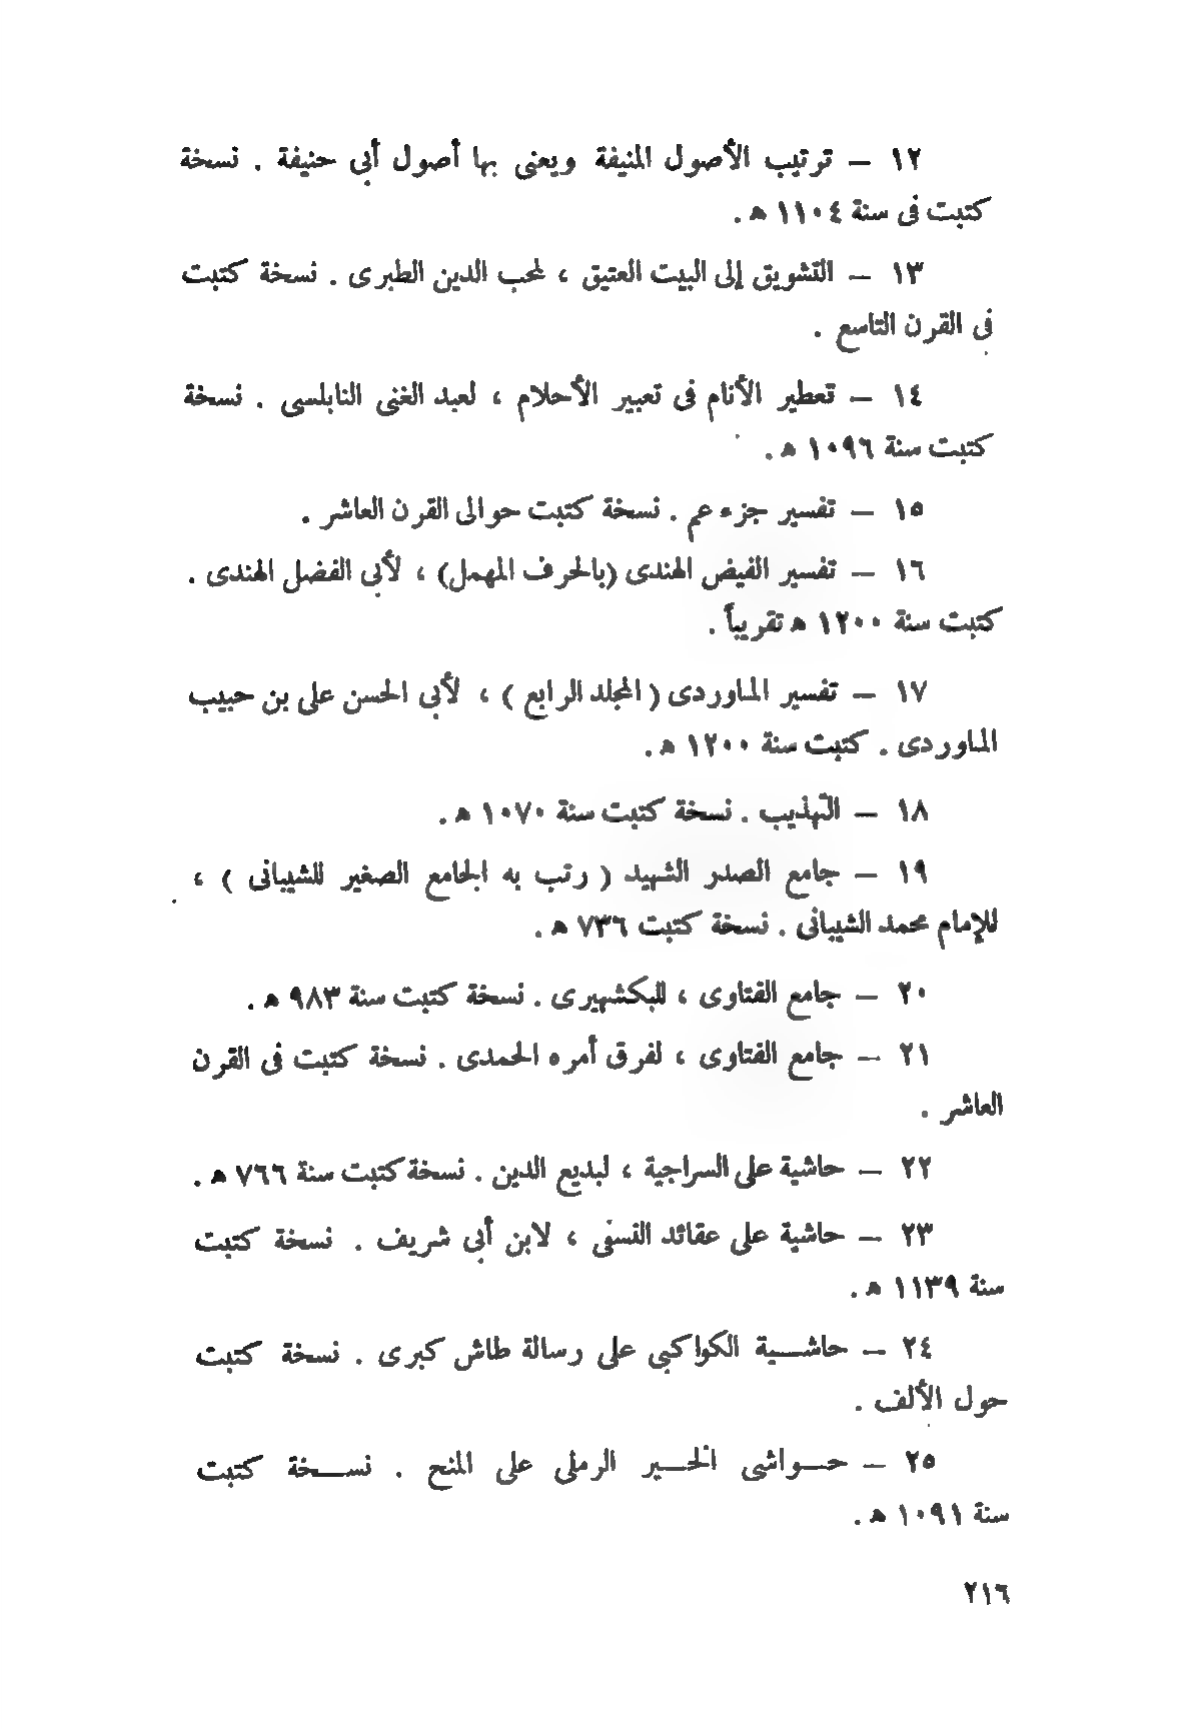 ١٢ – ترتيب الأصول المنيفة ويعنى بها أصول أبى حنيفة . نسخة
كتبت فى سنة ١١٠٤ ه .
١٣ – التشويق إلى البيت العتيق ، لمحب الدين الطبرى . نسخة كتبت
فى القرن التاسع .
١٤ – تعطير الأنام فى تعبير الأحلام ، لعبد الغنى النابلسى . نسخة
كتبت سنة ١٠٩٦ ه .
١٥ – تفسير جزء عم . نسخة كتبت حوالى القرن العاشر .
١٦ – تفسير الفيض الهندى (بالحرف المهمل) ، لأبى الفضل الهندى .
كتبت سنة ١٢٠٠ ه تقريباً .
١٧ – تفسير الماوردى ( المجلد الرابع ) ، لأبى الحسن على بن حبيب
الماوردى . كتبت سنة ١٢٠٠ ه .
١٨ – التهذيب . نسخة كتبت سنة ١٠٧٠ ه .
١٩ – جامع الصدر الشهيد ( رتب به الجامع الصغير للشيبانى ) ،
للإمام محمد الشيبانى . نسخة كتبت ٧٣٦ ه .
٢٠ – جامع الفتاوى ، للبكشهيرى . نسخة كتبت سنة ٩٨٣ ه .
٢١ – جامع الفتاوى ، لفرق أمره الحمدى . نسخة كتبت فى القرن
العاشر .
٢٢ – حاشية على السراجية ، لبديع الدين . نسخة كتبت سنة ٧٦٦ ه .
٢٣ – حاشية على عقائد النسفى ، لابن أبى شريف . نسخة كتبت
سنة ١١٣٩ ه .
٢٤ – حاشــية الكواكبى على رسالة طاش كبرى . نسخة كتبت
حول الألف .
٢٥ – حــواشى الخــير الرملى على المنح . نســخة كتبت
سنة ١٠٩١ ه .
٢١٦